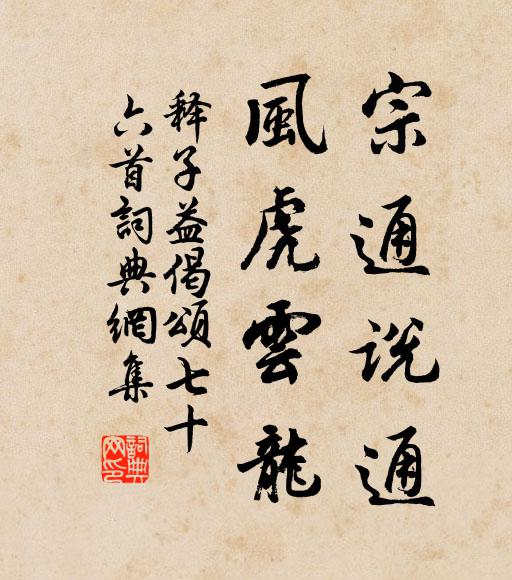 宗通說通
風虎雲龍
释子益偈頌七十
六首詞典網集
詞典
网印